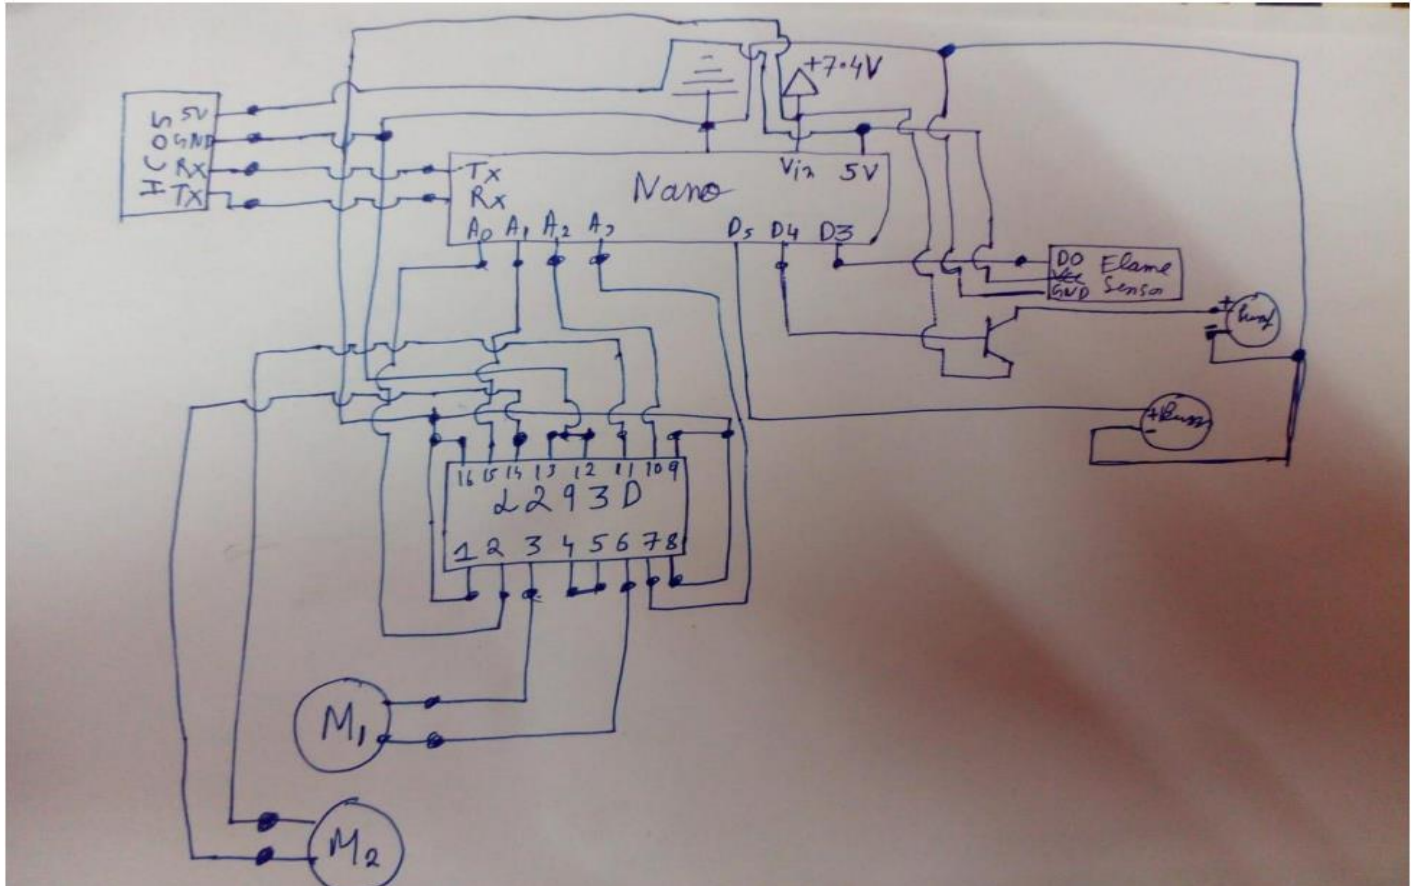 +7.4V
HC05
5V
GND
RX
TX
Tx
Rx
Nano
Vin
5V
A0 A1 A2 A3
D5 D4 D3
DO
VCC
GND
Flame
Sensor
+
+
-
16 15 14 13 12 11 10 9
L293D
1 2 3 4 5 6 7 8
M1
M2